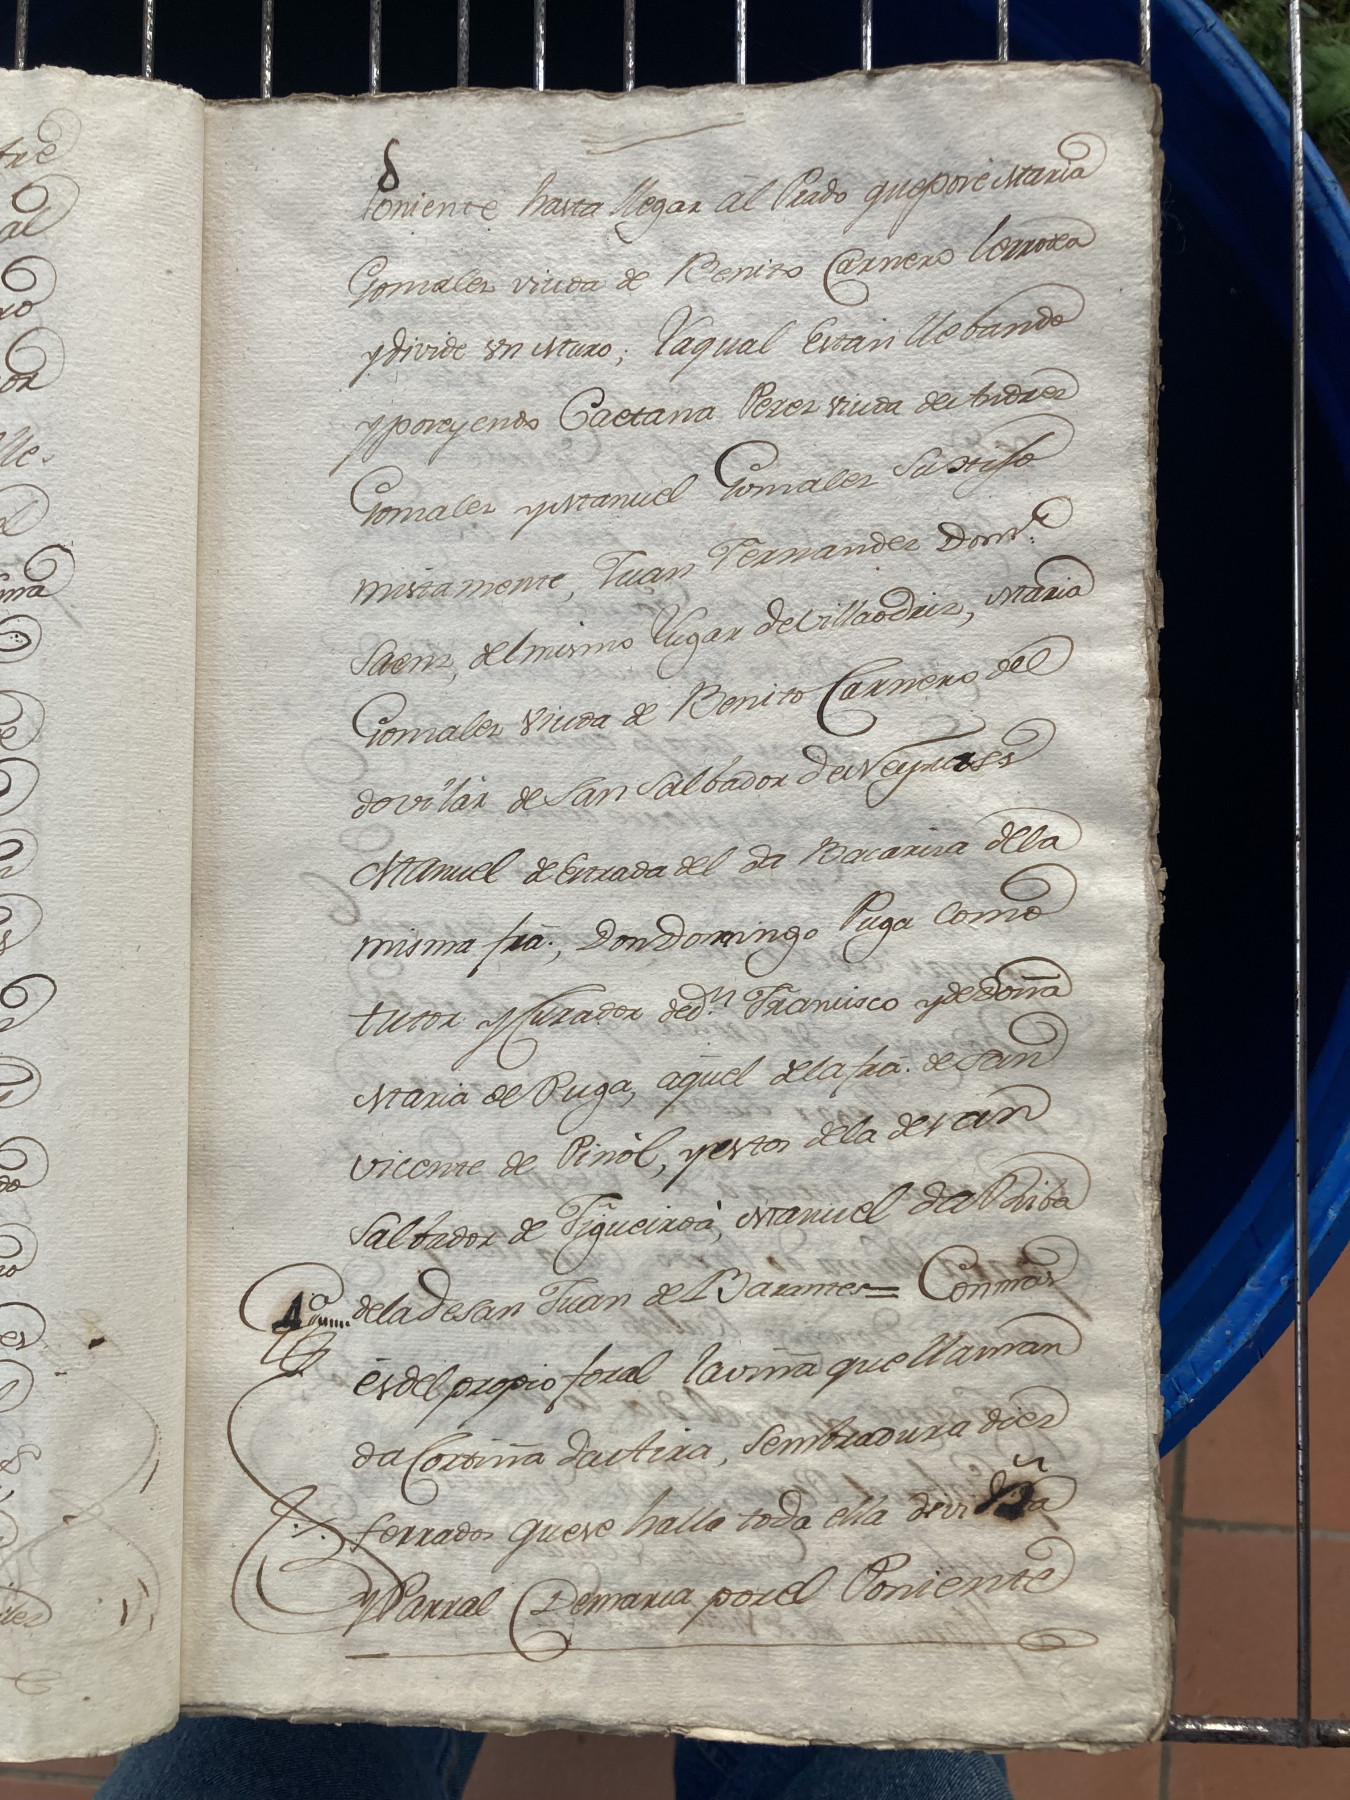 8
Poniente hasta llegar âl Prado queposé Maria
Gonzalez viuda de Benito Carnero Cerrora
ydivide un Muro; laqual Están llebando
yposeyendo Caetana Perez viuda de Andres
Gonzalez yManuel Gonzalez
mistamente, Juan Fernandez Dom.
Saenz, del mismo lugar deVillaodriz, Maria
Gonzalez viuda de Benito Carnero del
dovilar de San Salbador de Neyras
Manuel de Estrada del da Bacariza dela
misma fra., Don Domingo Puga como
tutor yCurador ded.n Francisco ydedoña
Maria de Puga, aquel dela fra. de San
Vicente de Pinól, yestos dela desan
Salbador de Figueiroá, Manuel da Riba
dela desan Juan de Barantes = Conmas
ésdel propio foral laviña que llaman
da Cortiña daAira, Sembradura diez
ferrados quese halla toda ella de viña
yParral Demarca porel Poniente